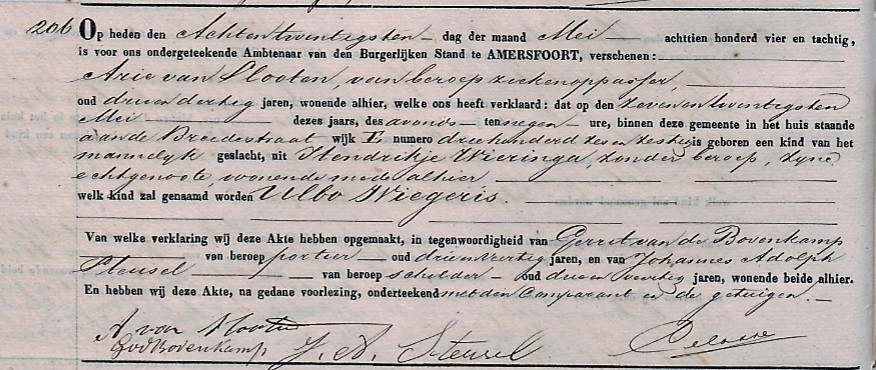 206 Op heden den Achtentwintigsten dag der maand Mei achttien honderd vier en tachtig,
is voor ons ondergeteekende Ambtenaar van den Burgerlijken Stand te AMERSFOORT, verschenen:
Arie van Slooten, van beroep ziekenoppasser,
oud drieendertig jaren, wonende alhier, welke ons heeft verklaard: dat op den zevenentwintigsten
Mei dezes jaars, des avonds ten negen ure, binnen deze gemeente in het huis staande
aan de Breedestraat wijk E numero driehonderd zes en zestig is geboren een kind van het
mannelijk geslacht, uit Hendrikje Wieringa, zonder beroep, zyne
echtgenoote, wonende mede alhier
welk kind zal genaamd worden Ulbo Wiegeris.
Van welke verklaring wij deze Akte hebben opgemaakt, in tegenwoordigheid van Gerrit van de Bovenkamp
van beroep portier oud drieenveertig jaren, en van Johannes Adolph
Steusel van beroep schilder oud drieenveertig jaren, wonende beide alhier.
En hebben wij deze Akte, na gedane voorlezing, onderteekend met den Comparant en de getuigen.
A. van Slooten
GvdBovenkamp J. A. Steusel